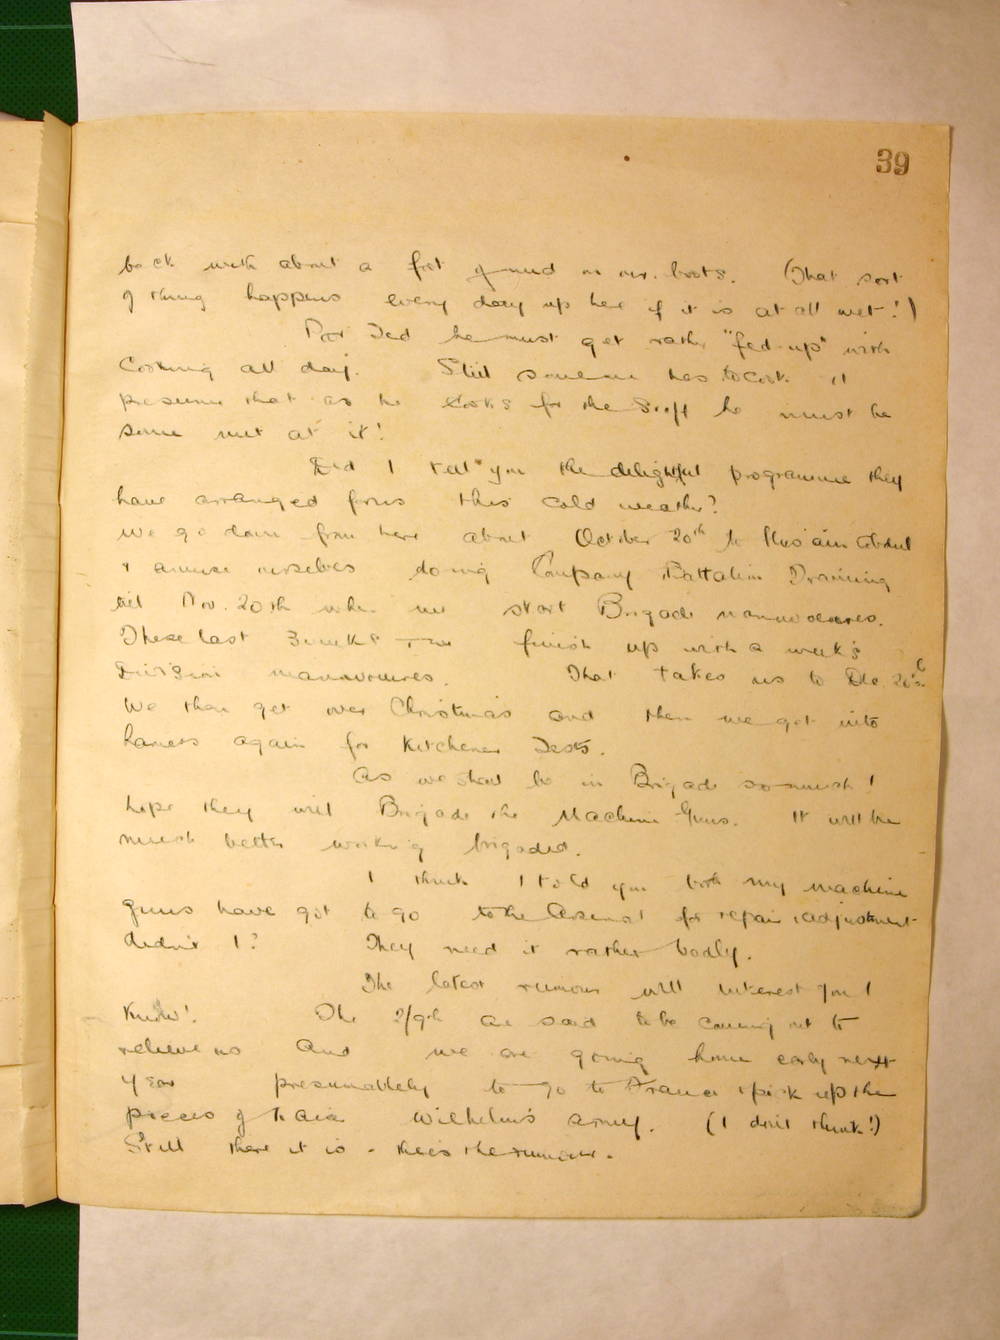 39
back with about a foot of mud on our boots. (That sort
of thing happens every day up here if it is at all wet!)
Poor Ted he must get rather "fed-up" with
Cooking all day. Still someone has to cook. I
presume that as he cooks for the Staff he must be
some nut at it!
Did I tell you the delightful programme they
have arranged for us this cold weather?
We go down from here about October 20th to Hasain Abdul
& amuse ourselves doing Company & Battalion Training
till Nov. 20th when we start Brigade manuvoeures.
These last 3 weeks & we finish up with a week's
Division manuvoeures. That takes us to Dec 20th.
We then get over Christmas and then we get into
harness again for Kitchener Tests.
As we shall be in Brigade so much I
hope they will Brigade the Machine-Guns. It will be
much better working brigaded.
I think I told you both my machine
guns have got to go to the Arsenal for repair & adjustment
didn't I? They need it rather badly.
The latest rumour will interest you I
know! The 2/9th are said to be coming out to
relieve us and we are going home early next
year presumablely to go to France & pick up the
pieces of Kaiser Wilhelm's army. (I don't think!)
Still there it is - there's the rumour.